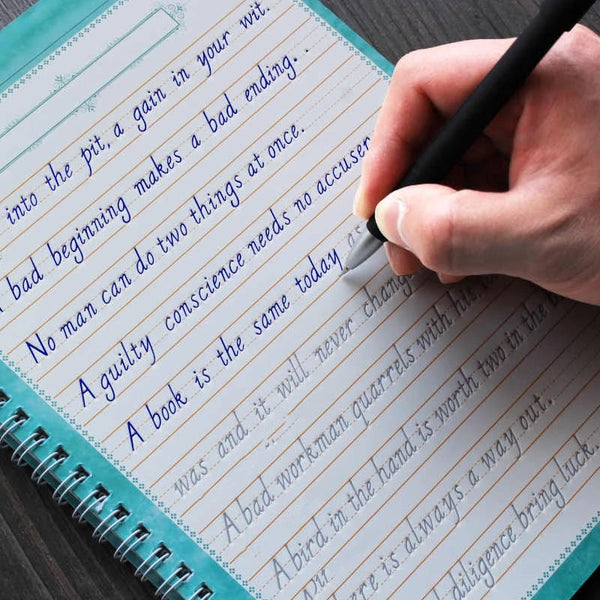 into the pit, a gain in your wit.
bad beginning makes a bad ending.
No man can do two things at once.
A guilty conscience needs no accuser
A book is the same today as
was and it will never chang
A bad workman quarrels with his
A bird in the hand is worth two in the b
ere is always a way out.
diligence bring luck.